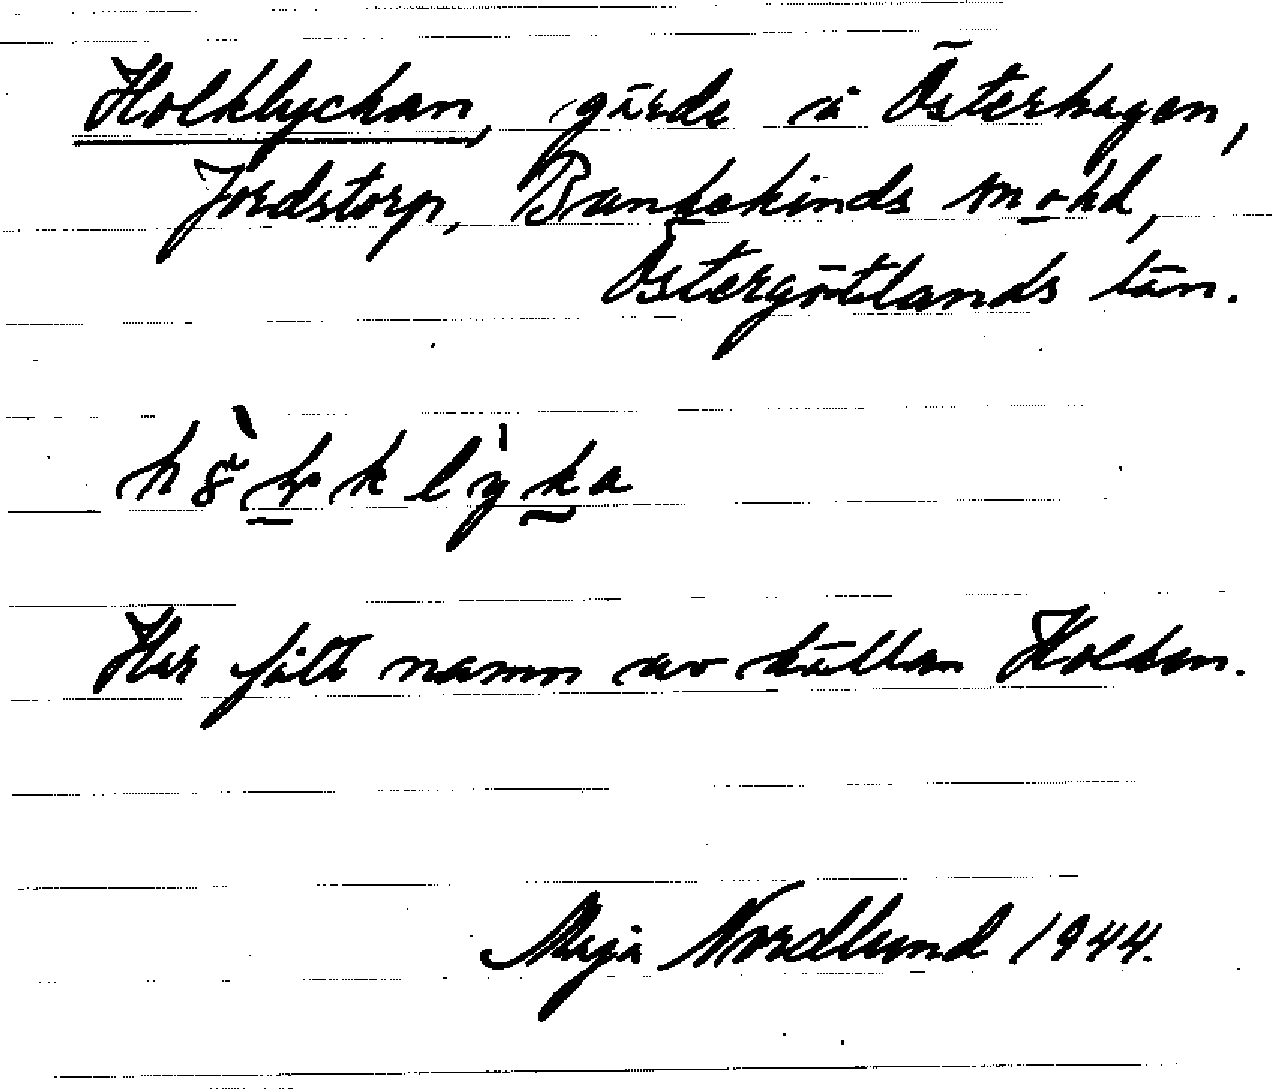 Holklyckan, gärde å Österhagen,
Jordstorp, Bankekinds sn o hd,
Östergötlands län.
Har fått namn av källan Holken.
Maja Nordlund 1944.